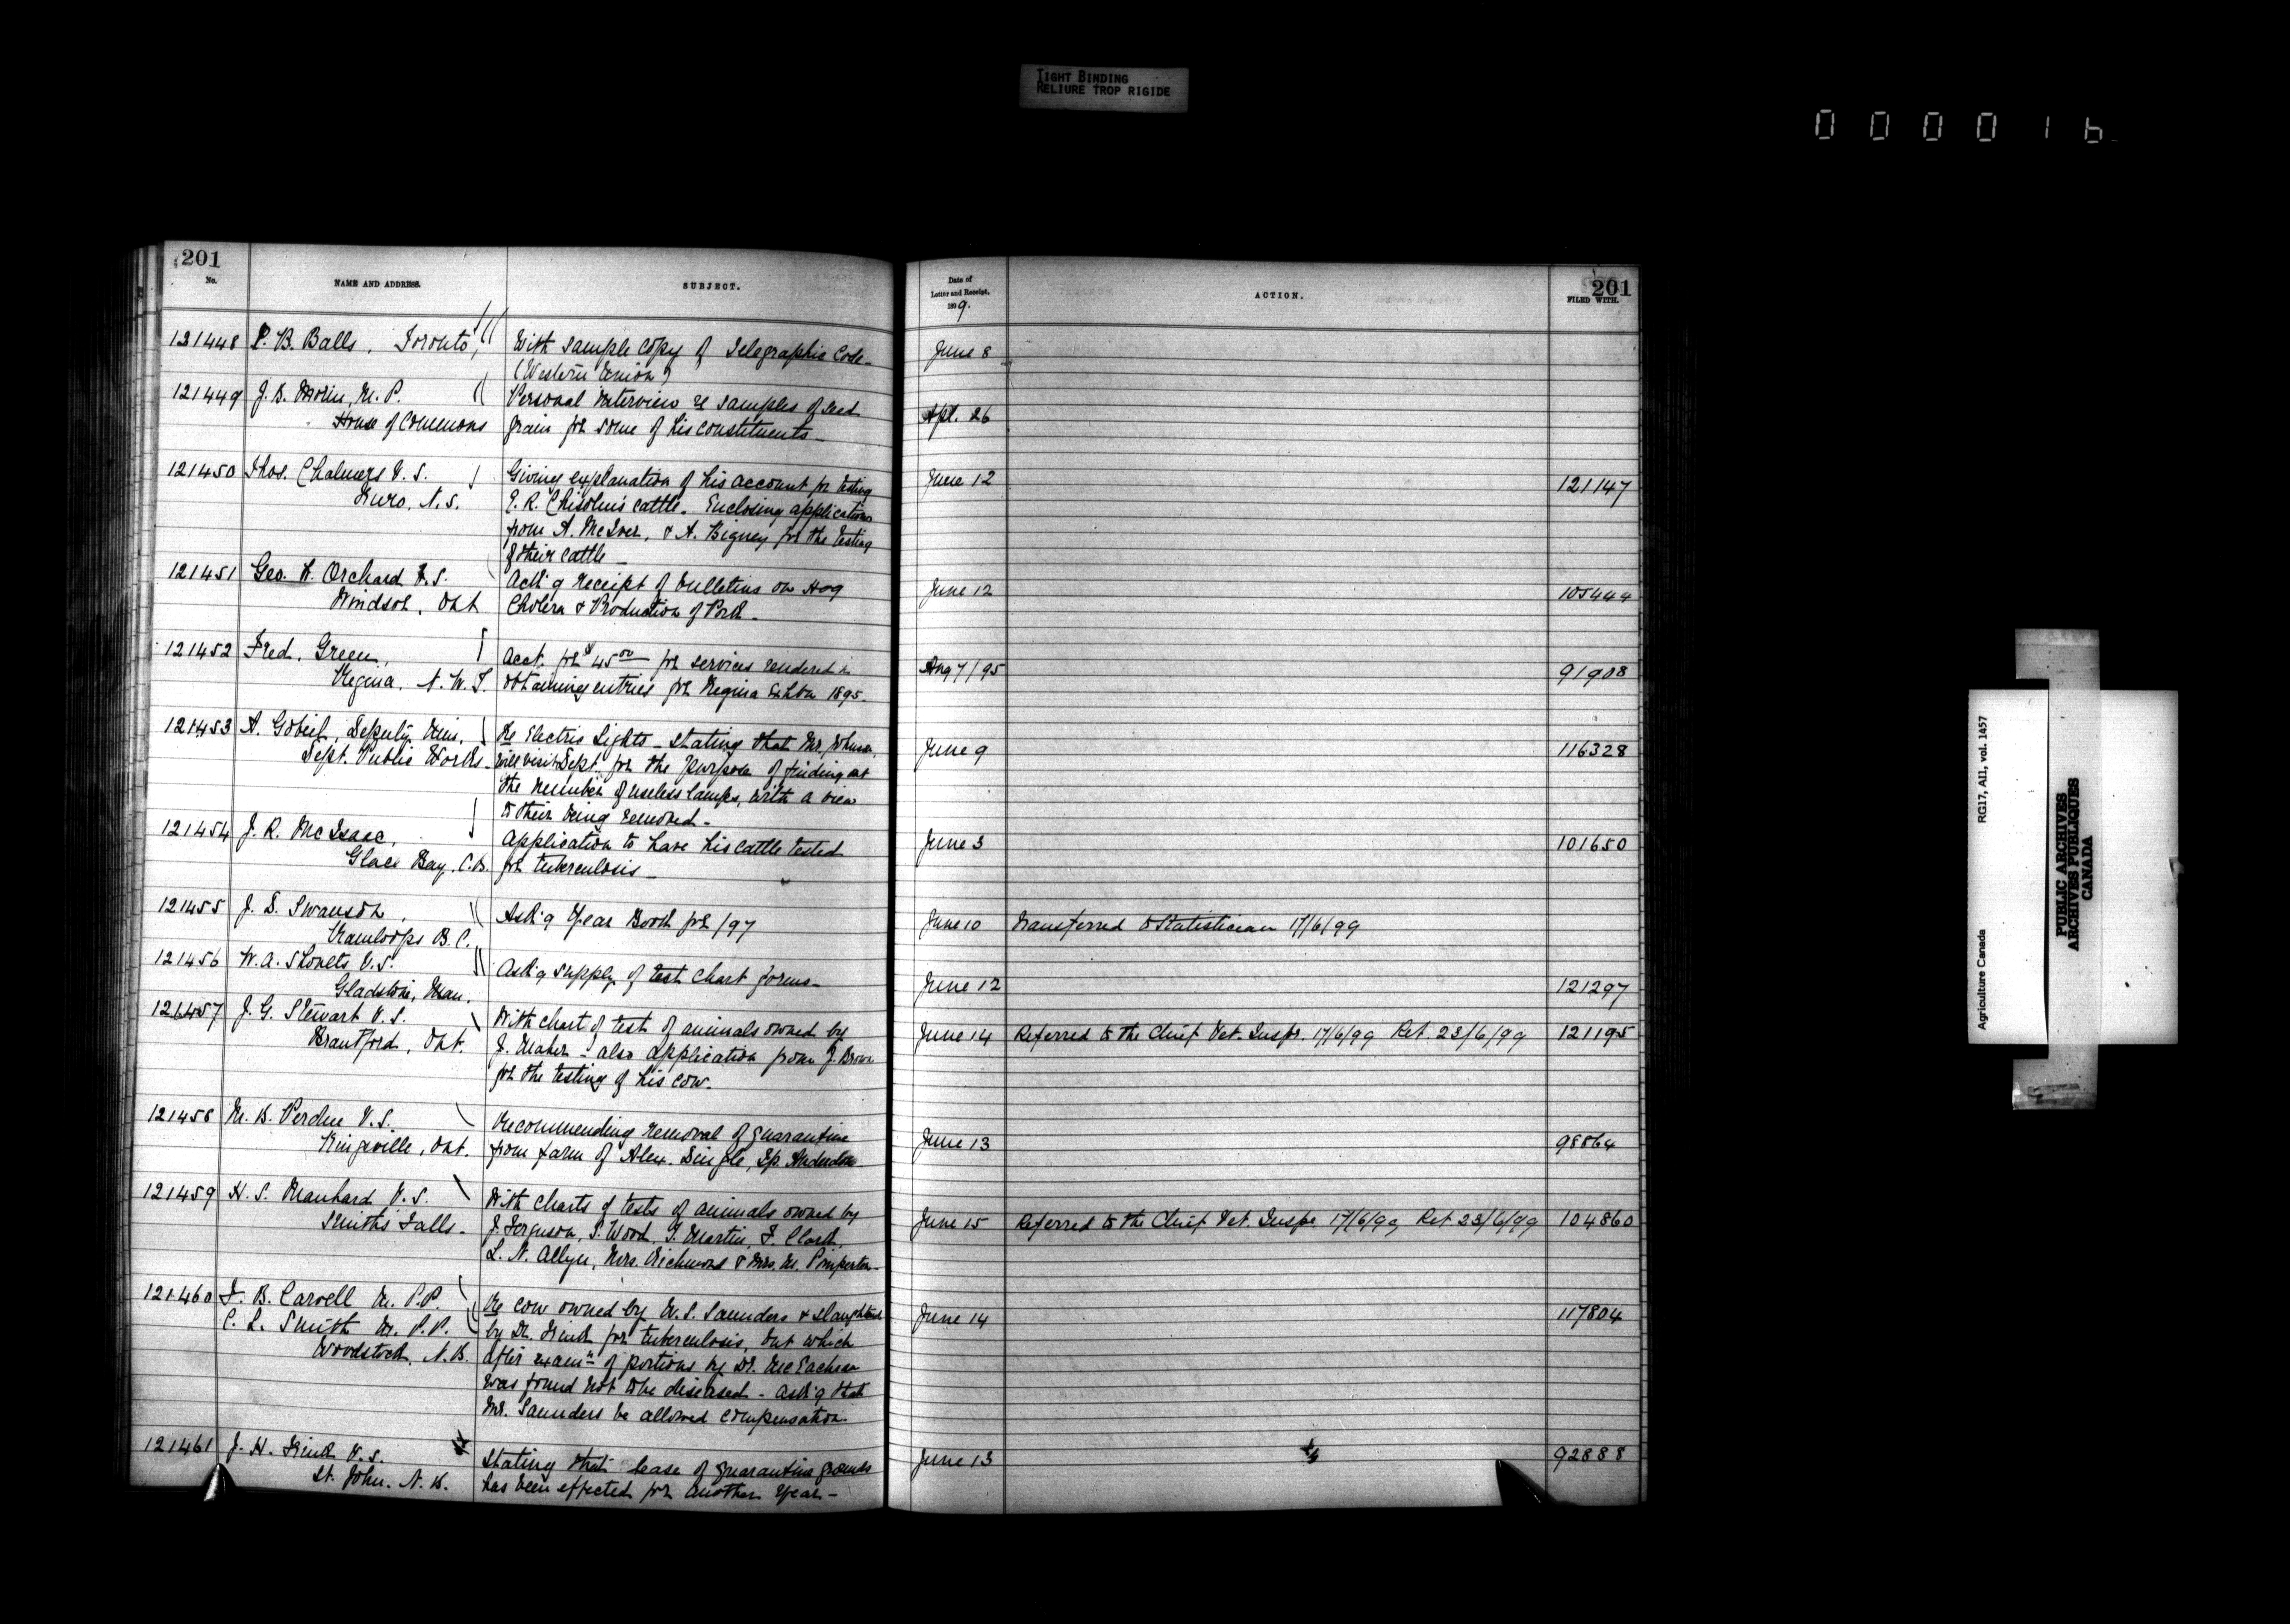 TIGHT BINDING
RELIURE TROP RIGIDE
0 0 0 0 1 6
201
No.
NAME AND ADDRESS.
SUBJECT.
Date of
Letter and Receipt,
1899.
ACTION.
201
FILED WITH.
121448 P. B. Balls, Toronto, With sample copy of Telegraphic Code- June 8
(Western Union)
121449 J. B. Morin, M. P. Personal interview re samples of seed Apl. 26
House of Commons grain for some of his constituents-
121450 Thos. Chalmers V. S. Giving explanation of his account for testing June 12 121147
Truro, N. S. E. R. Chisolm's cattle. Enclosing applications
from A. McIver, & A. Bigney for the testing
of their cattle-
121451 Geo. W. Orchard V. S. Ack'g receipt of bulletins on Hog June 12 105444
Windsor, Ont Cholera & Production of Pork-
121452 Fred. Green, Acct. for $45.00 for services rendered in Aug 7/95 91908
Regina, N. W. T. obtaining entries for Regina Exhbn 1895.
121453 A. Gobeil, Deputy Min. Re Electric Lights- stating that Mr. June 9 116328
Dept. Public Works- will visit Dept. for the purpose of finding out
the number of useless lamps, with a view
to their being removed-
121454 J. R. McIsaac, Application to have his cattle tested June 3 101650
Glace Bay, C.B. for tuberculosis-
121455 J. D. Swanson, Ask'g Year Book for /97 June 10 Transferred to Statistician 17/6/99
Kamloops B. C.
121456 W. A. Shoults V. S. Ask'g supply of test chart forms- June 12 121297
Gladstone, Man.
121457 J. G. Stewart V. S. With chart of test of animals owned by June 14 Referred to the Chief Vet. Inspr. 17/6/99 Ret. 23/6/99 121195
Brantford, Ont. J. Maher - also application from J. Brown
for the testing of his cow.
121458 M. B. Perdue V. S. Recommending removal of quarantine June 13 98864
Kingsville, Ont. from farm of Alex. Dingle, Tp. Anderdon
121459 H. S. Manhard V. S. With charts of tests of animals owned by June 15 Referred to the Chief Vet. Inspr 17/6/99 Ret 23/6/99 104860
Smiths Falls- J. Ferguson, S. Wood, T. Martin, F. Clark,
L. N. Allyn, Mrs. Richmond & Mrs. M. Pimperton-
121460 F. B. Carvell M. P.P. Re cow owned by W. S. Saunders & slaughtered June 14 117804
C. L. Smith M. P. P. by Dr. Frink for tuberculosis, but which
Woodstock, N. B. after examn of portions by Dr. McEachran
was found not to be diseased - ask'g that
Mr. Saunders be allowed compensation.
121461 J. H. Frink V. S. Stating that lease of quarantine grounds June 13 92888
St. John. N. B. has been effected for another year-
Agriculture Canada RG17, AII, vol. 1457
PUBLIC ARCHIVES
ARCHIVES PUBLIQUES
CANADA